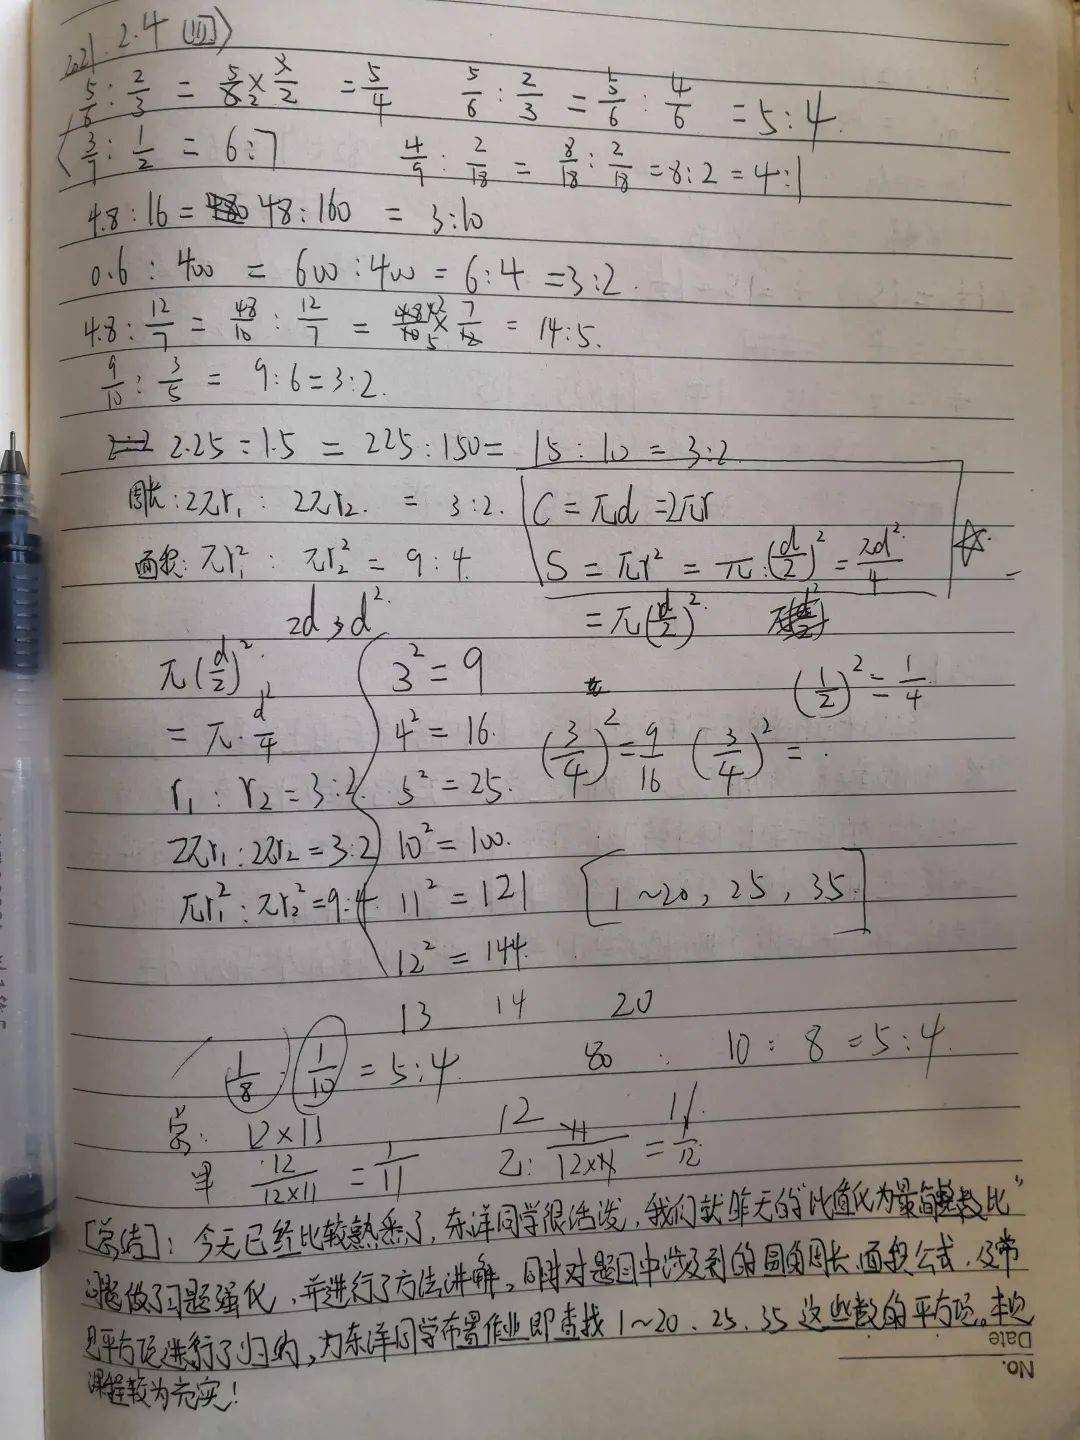 2021.2.4 (四)
5/6 : 2/3 = 5/6 × 3/2 = 5/4   5/6 : 2/3 = 5/6 : 4/6 = 5:4.
3/7 : 1/2 = 6:7   4/9 : 2/18 = 8/18 : 2/18 = 8:2 = 4:1
4.8 : 16 = 48:160 = 3:10
0.6 : 400 = 600:400 = 6:4 = 3:2.
4.8 : 12/7 = 48/10 : 12/7 = 48/10 × 7/12 = 14:5.
9/10 : 3/5 = 9:6 = 3:2.
2.25 : 1.5 = 225:150 = 15:10 = 3:2
周长: 2πr₁ : 2πr₂. = 3:2.   C = πd = 2πr
面积: πr₁² : πr₂² = 9:4.   S = πr² = π·(d/2)² = πd²/4
2d, d²   = π(d/2)²
π(d/2)²   3² = 9   (1/2)² = 1/4
= π·d²/4   4² = 16.   (3/4)² = 9/16   (3/4)² =
r₁ : r₂ = 3:2   5² = 25.
2πr₁ : 2πr₂ = 3:2   10² = 100.
πr₁² : πr₂² = 9:4.   11² = 121   [1~20, 25, 35.]
12² = 144.
13   14   20
1/8 : 1/10 = 5:4   80   10 : 8 = 5:4.
12×11   12
甲 12/12×11 = 1/11   乙: 11/12×11 = 1/12
[总结]: 今天已经比较熟悉了, 东洋同学很活泼, 我们就昨天的"比值化为最简整数比"
问题做了习题强化, 并进行了方法讲解, 同时对题目中涉及到的圆的周长、面积公式, 及常
见平方项进行了归纳, 为东洋同学布置作业即查找1~20、25、35这些数的平方项。本次
课程较为充实!
Date
No.